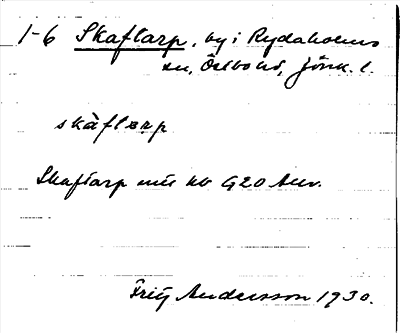 1-6 Skaftarp, by i Rydaholms
sn, Östbo hd, Jönk. l.
skàftarp
Skaftarp mtl kb G20 Anv.
Fritz Andersson 1930.